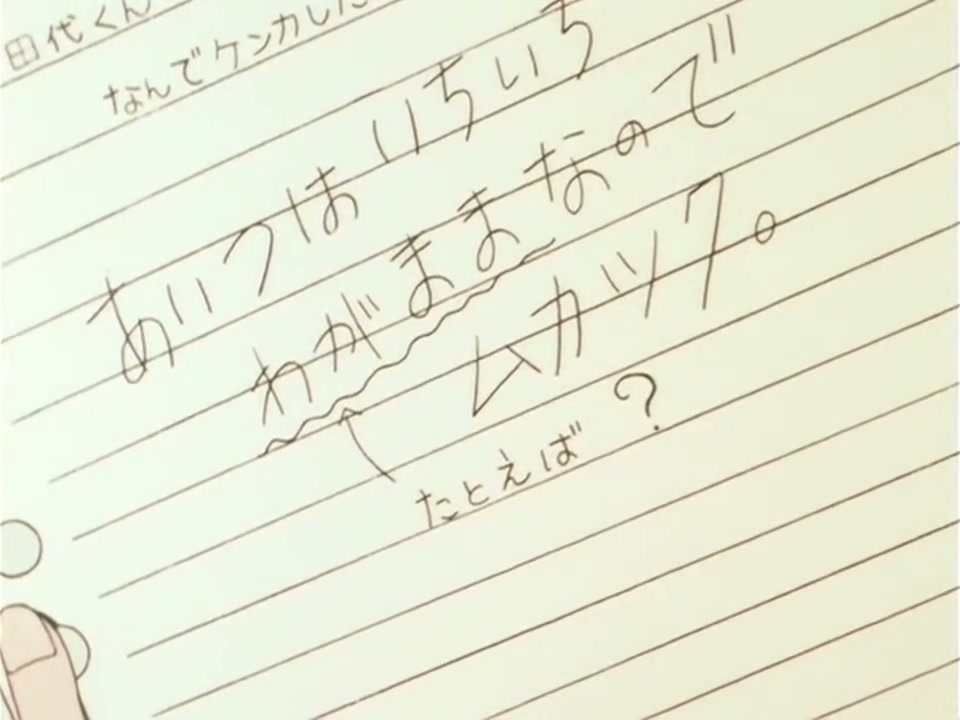 田代くん
なんでケンカした
あいつはいちいち
わがままなので
ムカツク。
たとえば？